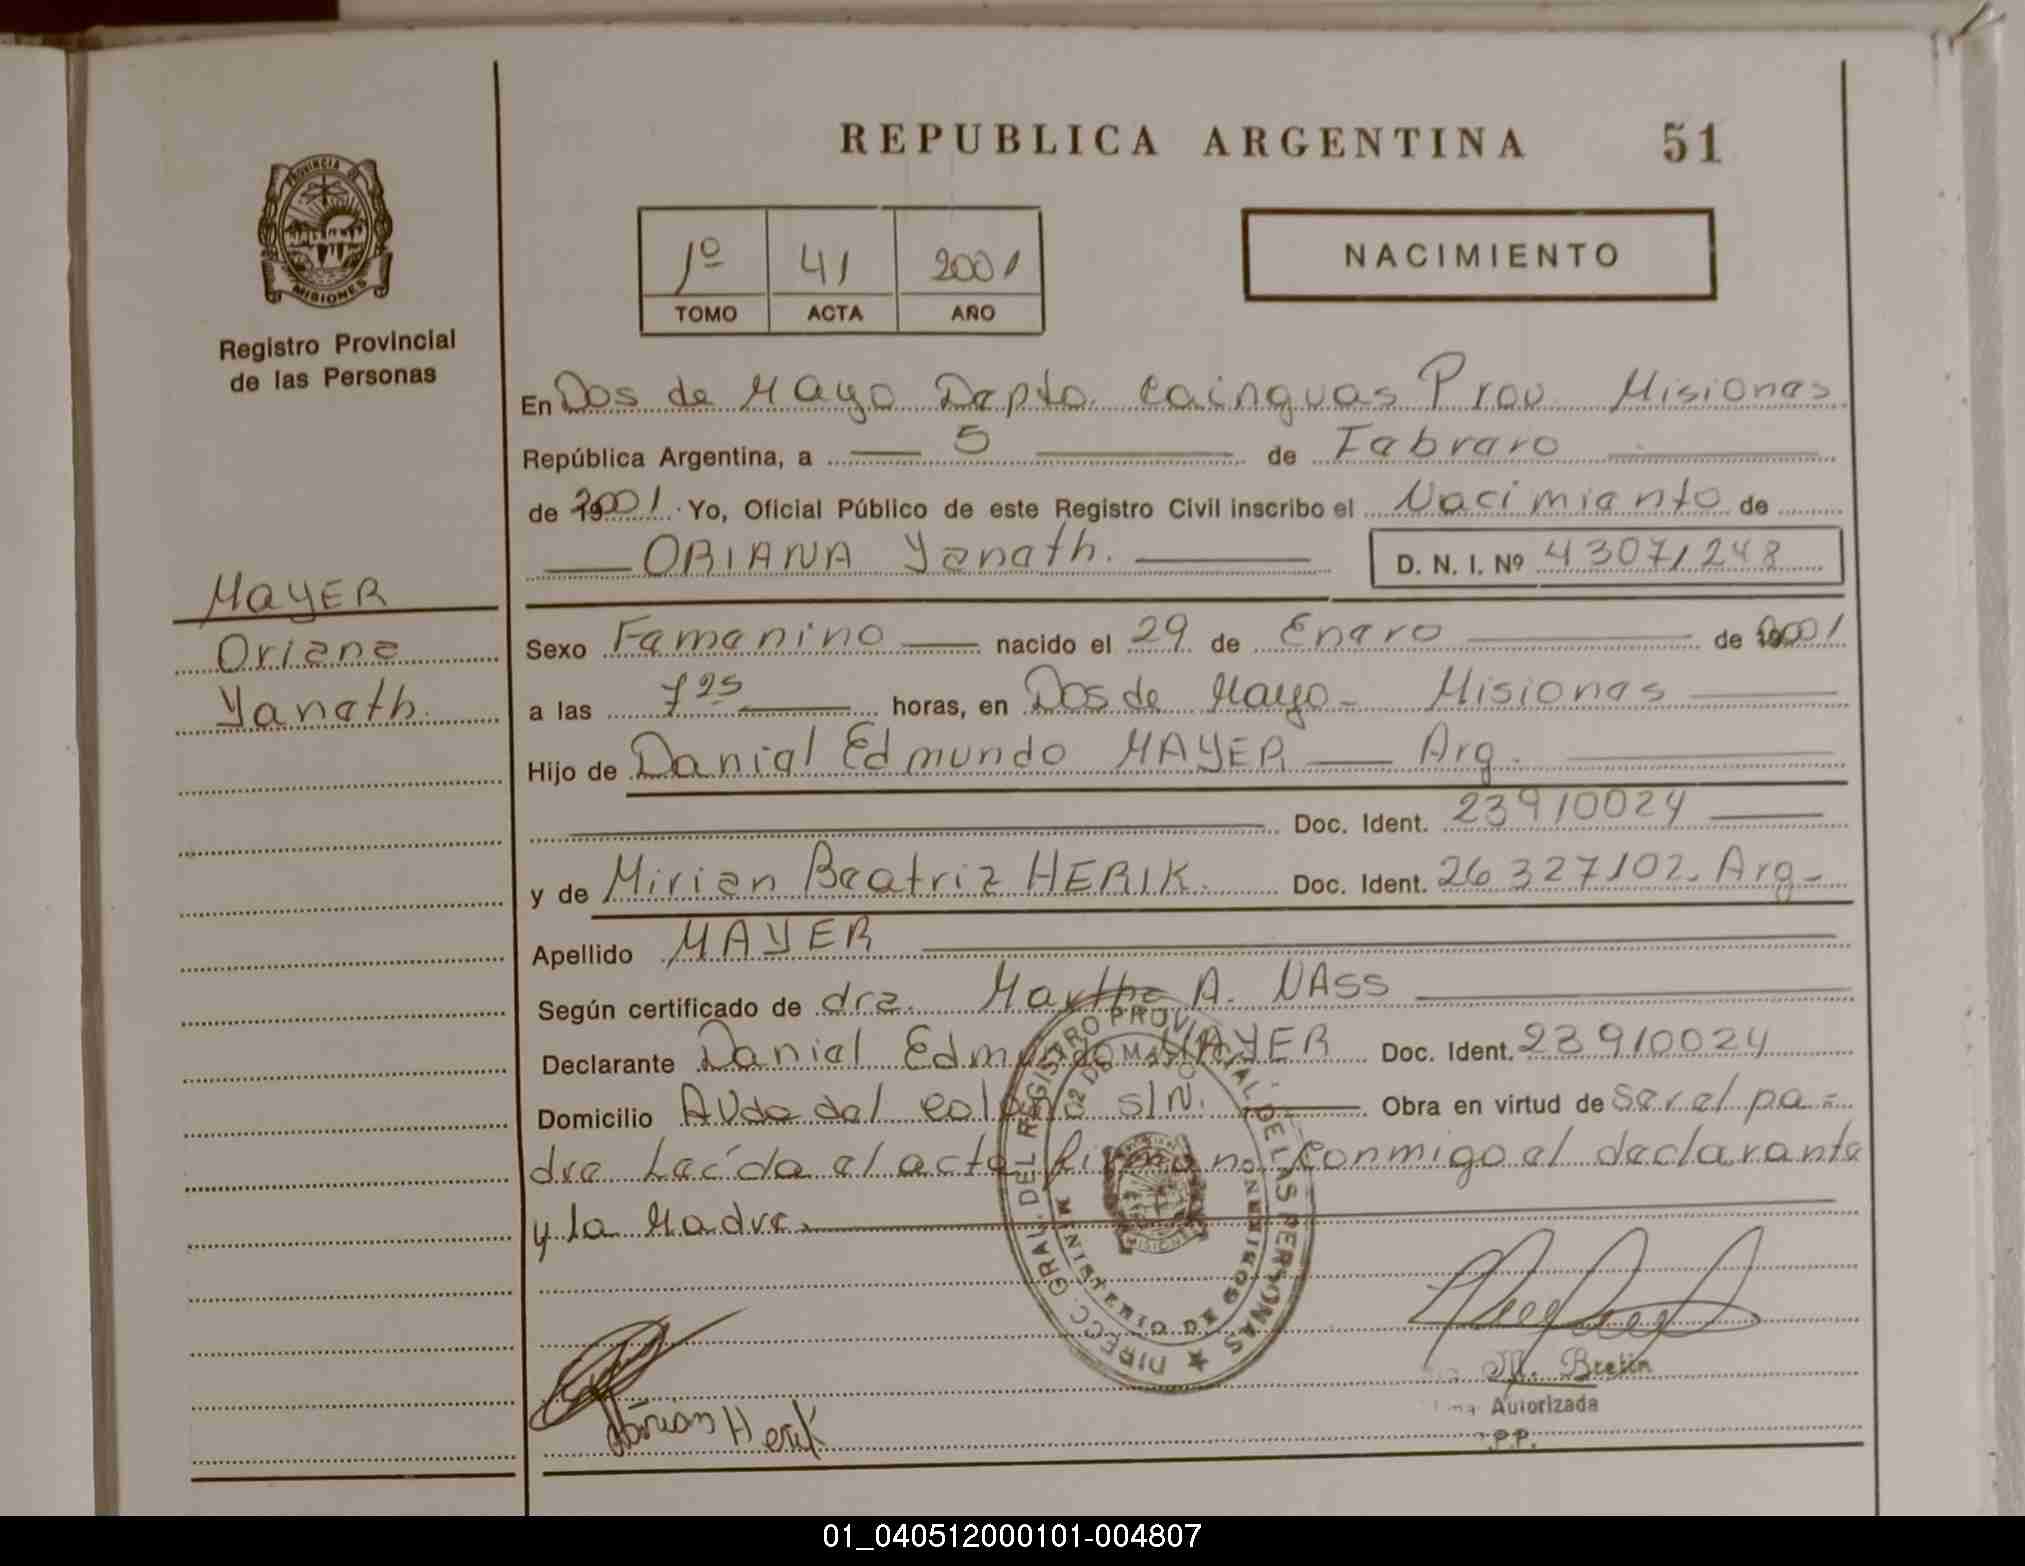 REPUBLICA ARGENTINA 51
PROVINCIA DE
MISIONES
Registro Provincial
de las Personas
1º 41 2001
TOMO ACTA AÑO
NACIMIENTO
En Dos de Mayo Depto. Cainguas Prov. Misiones
República Argentina, a 5 de Febrero
de 2001. Yo, Oficial Público de este Registro Civil inscribo el Nacimiento de
ORIANA Yaneth. D. N. I. Nº 43071248
MAYER
Oriana
Yaneth.
Sexo Femenino nacido el 29 de Enero de 2001
a las 7 25 horas, en Dos de Mayo - Misiones
Hijo de Daniel Edmundo MAYER Arg.
Doc. Ident. 23910024
y de Mirian Beatriz HERIK. Doc. Ident. 26327102. Arg-
Apellido MAYER
Según certificado de dra. Martha A. NASS
Declarante Daniel Edmundo MAYER Doc. Ident. 23910024
Domicilio Avda del Colono S/N. Obra en virtud de ser el pa=
dre Leída el acta firman conmigo el declarante
y la Madre.
DIRECC. GRAL. DEL REGISTRO PROVINCIAL DE LAS PERSONAS
2 DE MAYO
MINISTERIO DE GOBIERNO
MISIONES
Mirian Herik
M. Bretin
Autorizada
P.P.
01_040512000101-004807